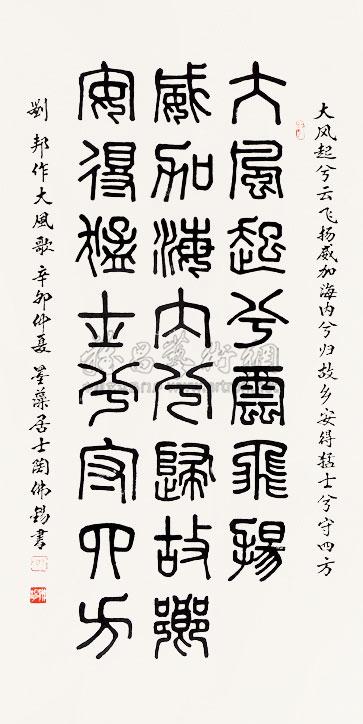 大风起兮云飞扬威加海内兮归故乡安得猛士兮守四方
大風起兮雲飛揚
威加海内兮歸故鄉
安得猛士兮守四方
劉邦作大風歌 辛卯仲夏 藻居士陶佛錫書
藝術網